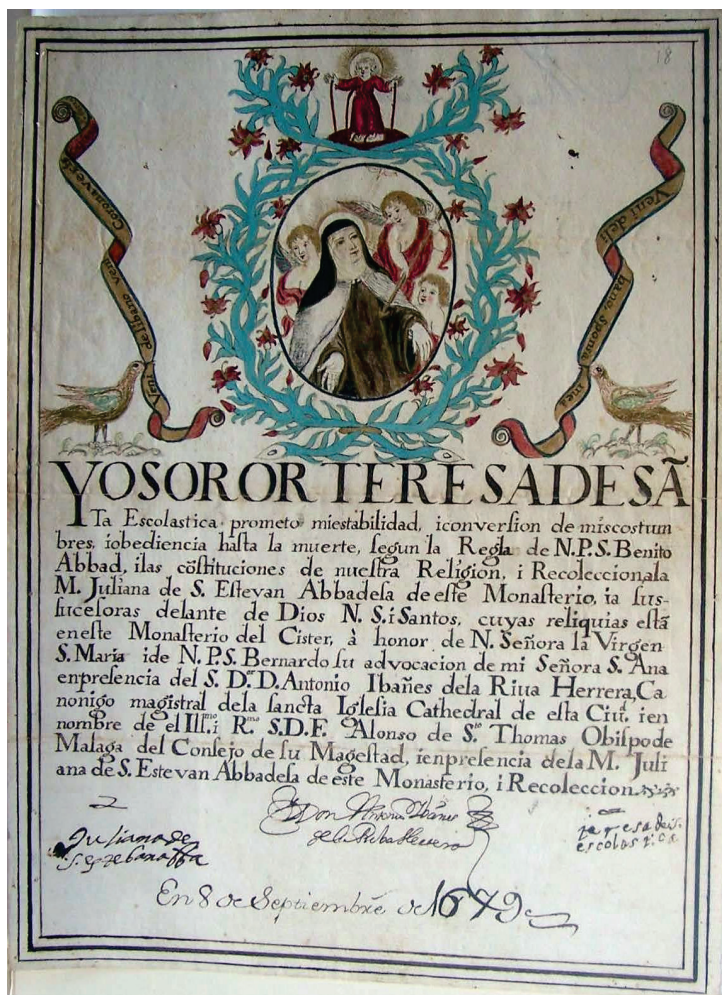 18
Veni de libano veni Coronaveris
Veni de li
bano, Sponsa
mea
YOSOROR TERESADESÃ
Ta Escolastica prometo miestabilidad, iconversion de miscostum
bres, iobediencia hasta la muerte, segun la Regla de N.P.S. Benito
Abbad, ilas cõstituciones de nuestra Religion, i Recoleccion, ala
M. Juliana de S. Estevan Abbadesa de este Monasterio, ia sus
sucesoras delante de Dios N. S. i Santos, cuyas reliquias estã
eneste Monasterio del Cister, à honor de N. Señora la Virgen
S. Maria ide N.P.S. Bernardo su advocacion de mi Señora S. Ana
enpresencia del S. D.r D. Antonio Ibañes dela Riua Herrera, Ca
nonigo magistral dela sancta Iglesia Cathedral de esta Ciu.d, ien
nombre de el Ill.mo i R.mo S.D.F. Alonso de S.to Thomas Obispo de
Malaga del Consejo de su Magestad, ienpresencia dela M. Juli
ana de S. Estevan Abbadesa de este Monasterio, i Recoleccion
Juliana de
S. esteban abba
Don Antonio Ibañes
de la Riba Herrera
teresa de s.
escolastica
En 8 de Septiembre de 1679